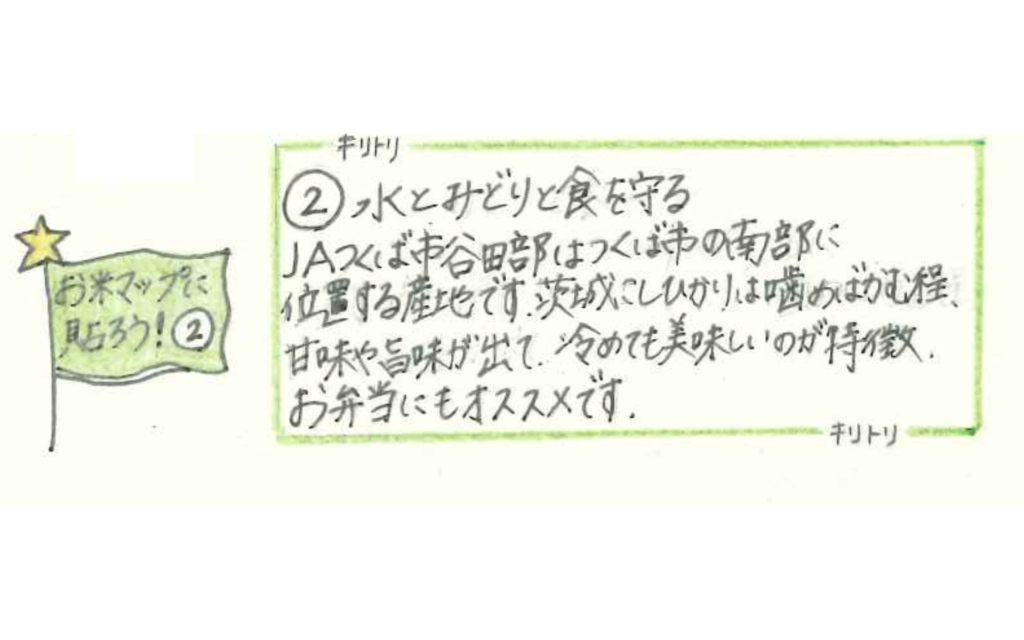 キリトリ
② 水とみどりと食を守る
JAつくば市谷田部はつくば市の南部に
位置する産地です.茨城こしひかりは噛めばかむ程、
甘味や旨味が出て.冷めても美味しいのが特徴.
お弁当にもオススメです.
キリトリ
お米マップに
貼ろう!②